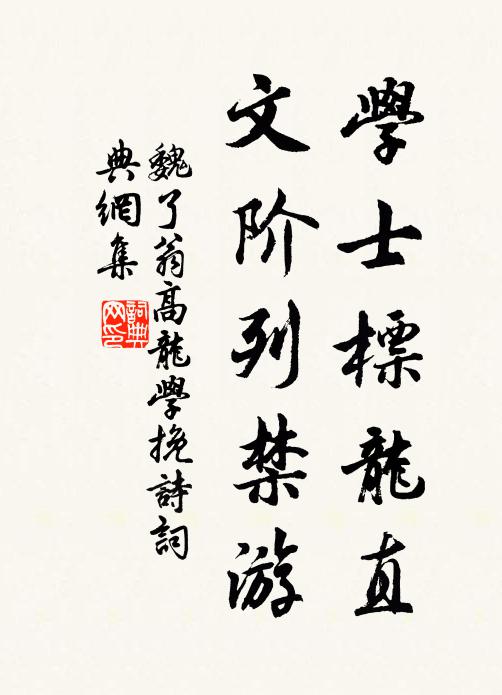 學士標龍直
文阶列禁游
魏了翁高龍學挽詩詞
典網集
詞典網印